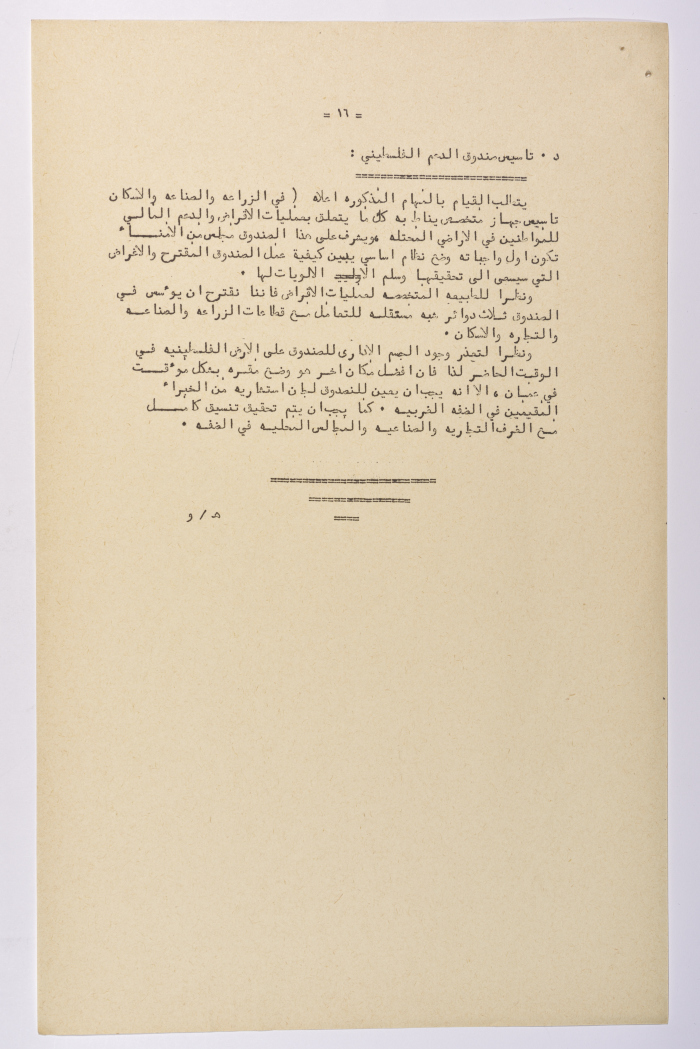 = ١٦ =
د . تاسيس صندوق الدعم الفلسطيني :
يتطلب القيام بالمهام المذكوره اعلاه ( في الزراعه والصناعه والاسكان
تاسيس جهاز متخصص يناط به كل ما يتعلق بعمليات الاقراض والدعم المالـــي
للمواطنين في الاراضي المحتله ويشرف على هذا الصندوق مجلس من الامنـــاء
تكون اول واجباته وضع نظام اساسي يبين كيفية عمل الصندوق المقترح والاغراض
التي سيسعى الى تحقيقها وسلم الالويات لها .
ونظرا للطبيعه المتخصصه لعمليات الاقراض فاننا نقترح ان يوءسس فــي
الصندوق ثـلاث دوائر شبه مستقلـه للتعامل مع قطاعات الزراعه والصناعـــه
والتجاره والاسكان .
ونظرا لتعذر وجود الجسم الادارى للصندوق على الارض الفلسطينيه فــي
الوقت الحاضر لذا فان افضل مكان اخر هو وضع مقره بشكل موءقــت
في عمـان ، الا انه يجب ان يعين للصندوق لجان استشاريه من الخبراء
المقيمين في الضفه الغربيـه . كما يجب ان يتم تحقيق تنسيق كامـــل
مـع الغرف التجاريه والصناعيـه والمجالس المحليه في الضفـه .
هـ / و